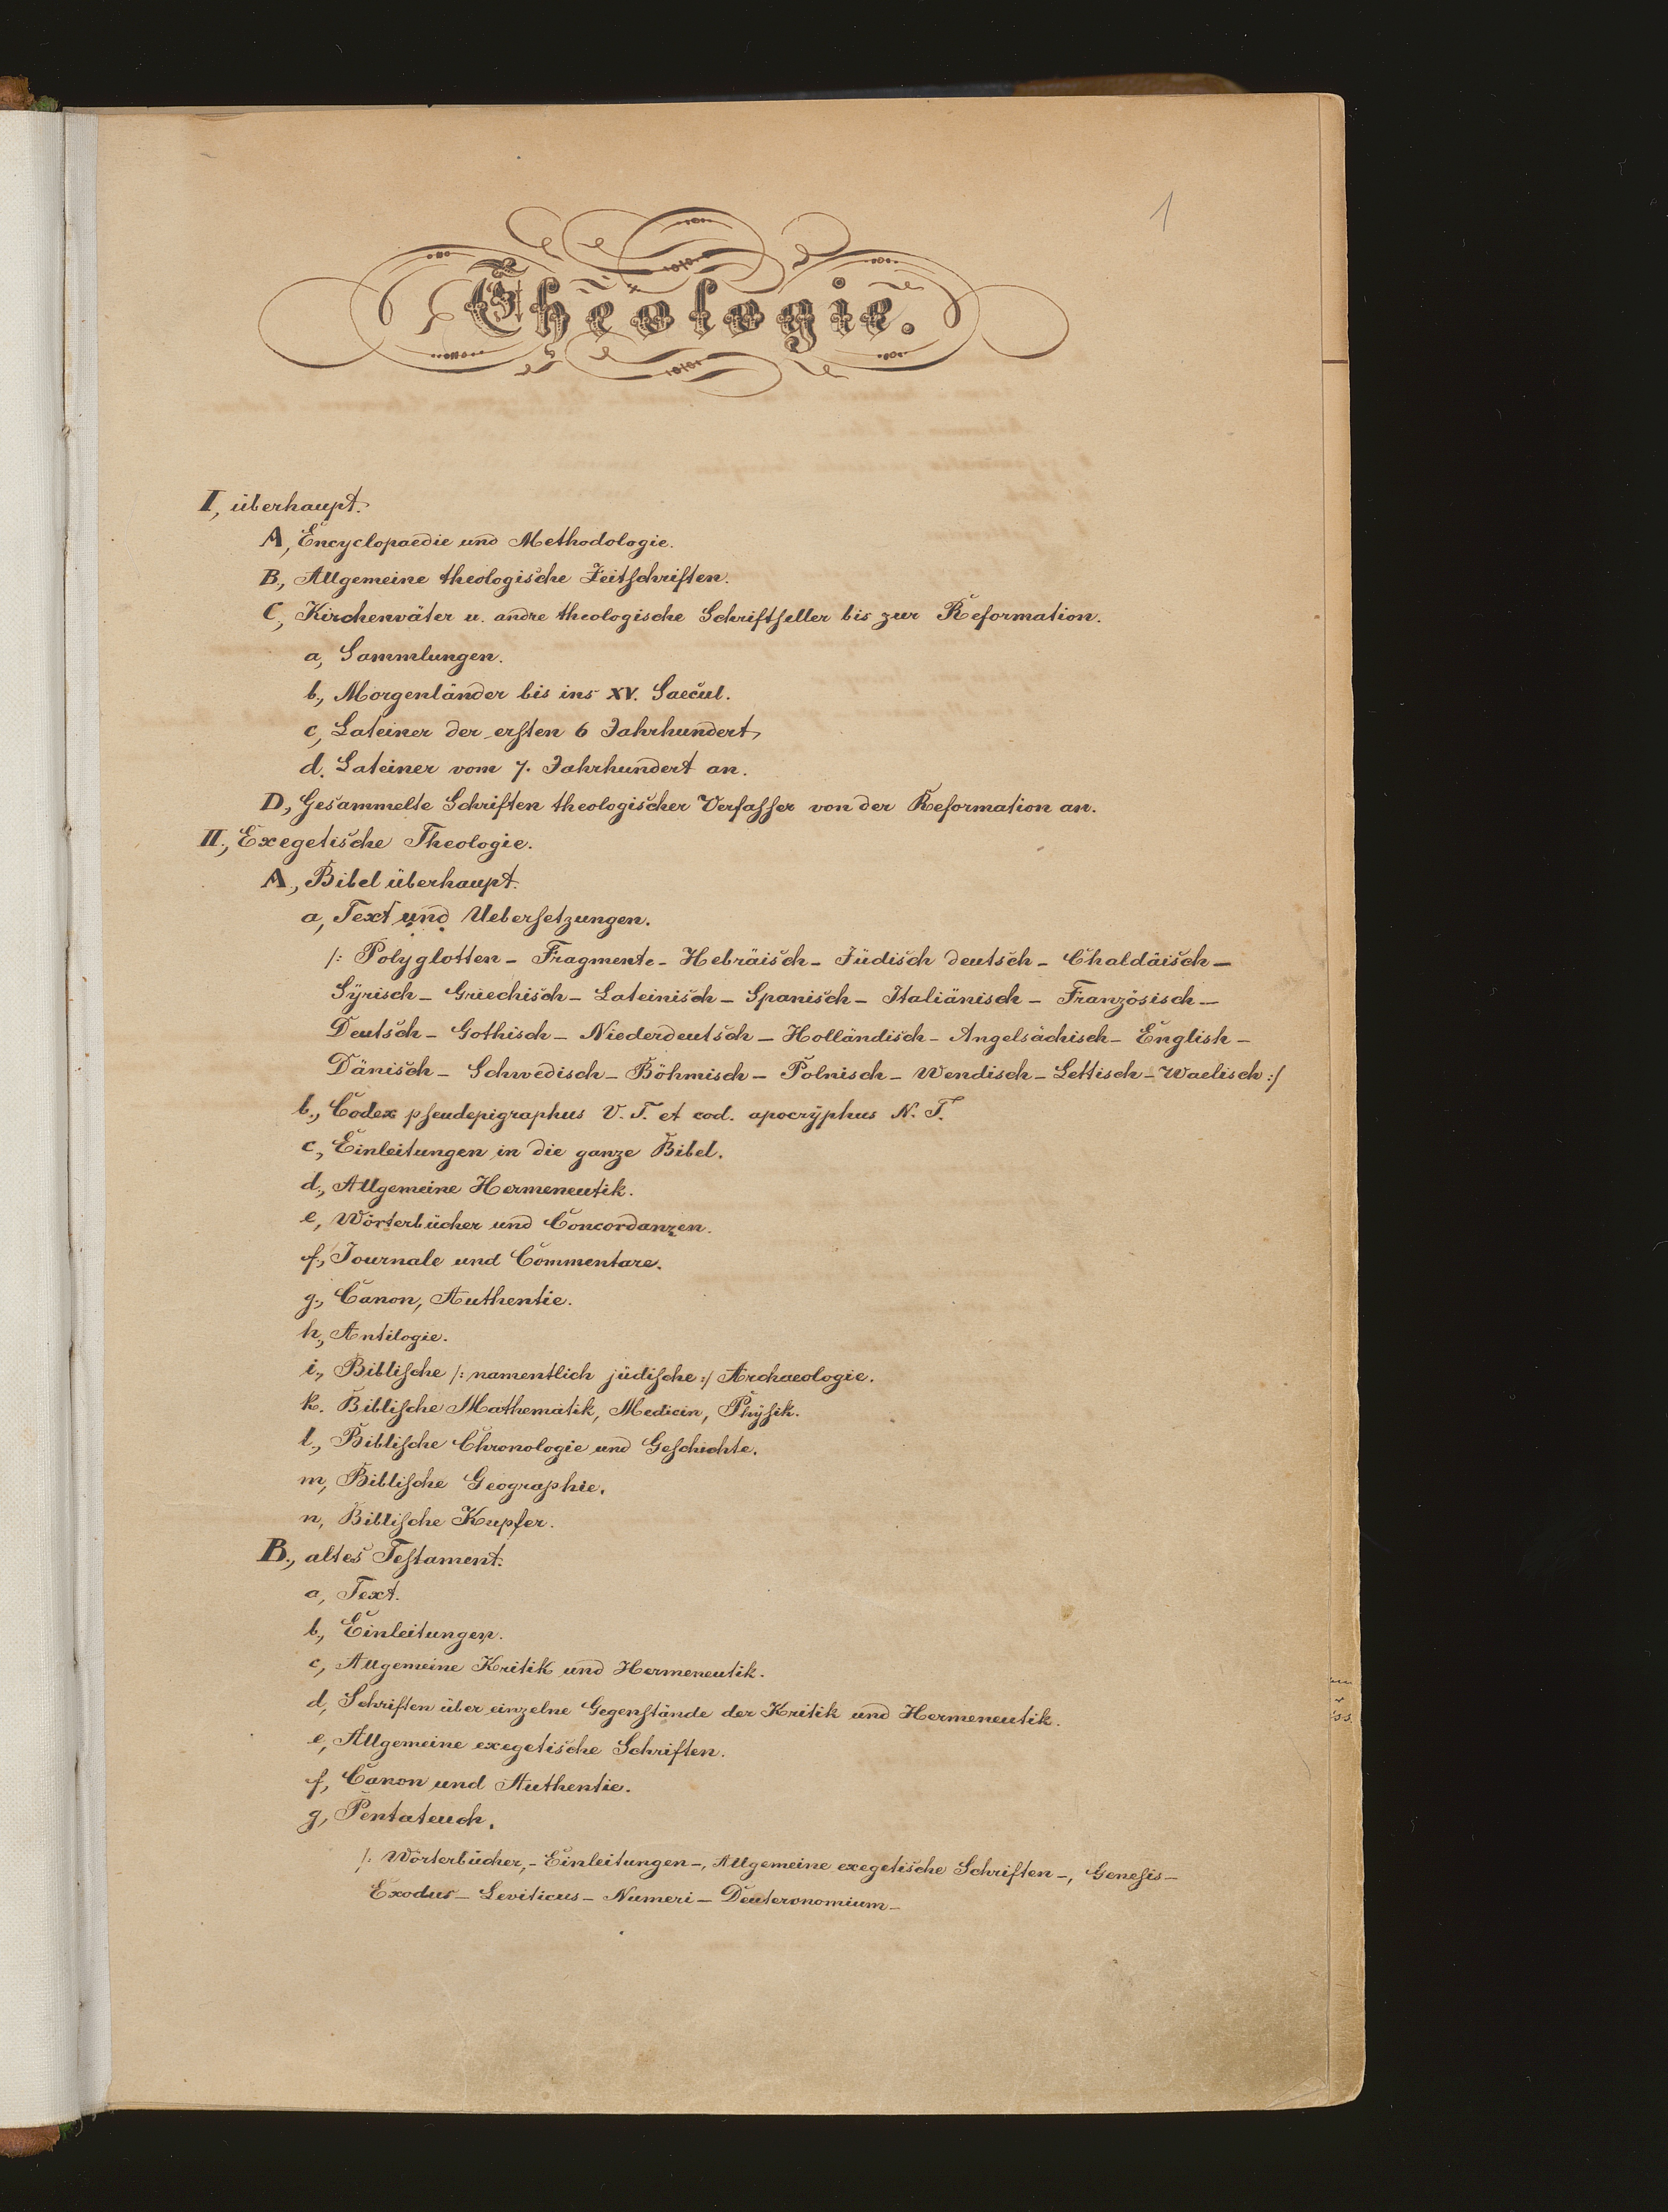 1
Theologie.
I, überhaupt.
A, Encyclopaedie und Methodologie.
B., Allgemeine theologische Zeitschriften.
C, Kirchenväter u. andre theologische Schriftsteller bis zur Reformation.
a, Sammlungen.
b., Morgenländer bis ins XV. Saecul.
c, Lateiner der ersten 6 Jahrhundert,
d. Lateiner vom 7. Jahrhundert an.
D., Gesammelte Schriften theologischer Verfasser von der Reformation an.
II., Exegetische Theologie.
A., Bibel überhaupt.
a, Text und Uebersetzungen.
/: Polyglotten - Fragmente - Hebräisch - Jüdisch deutsch - Chaldäisch -
Syrisch - Griechisch - Lateinisch - Spanisch - Italiänisch - Französisch -
Deutsch - Gothisch - Niederdeutsch - Holländisch - Angelsächisch - Englisch -
Dänisch - Schwedisch - Böhmisch - Polnisch - Wendisch - Lettisch - Waelisch :/
b., Codex pseudepigraphus V. T. et cod. apocryphus N. T.
c., Einleitungen in die ganze Bibel.
d., Allgemeine Hermeneutik.
e, Wörterbücher und Concordanzen.
f., Journale und Commentare.
g., Canon, Authentie.
h., Antilogie.
i., Biblische /: namentlich jüdische :/ Archaeologie.
k. Biblische Mathematik, Medicin, Physik.
l., Biblische Chronologie und Geschichte.
m, Biblische Geographie.
n, Biblische Kupfer.
B., altes Testament.
a, Text.
b, Einleitungen.
c, Allgemeine Kritik und Hermeneutik.
d, Schriften über einzelne Gegenstände der Kritik und Hermeneutik.
e, Allgemeine exegetische Schriften.
f, Canon und Authentie.
g, Pentateuch.
/: Wörterbücher, - Einleitungen -, Allgemeine exegetische Schriften -, Genesis -
Exodus - Leviticus - Numeri - Deuteronomium -